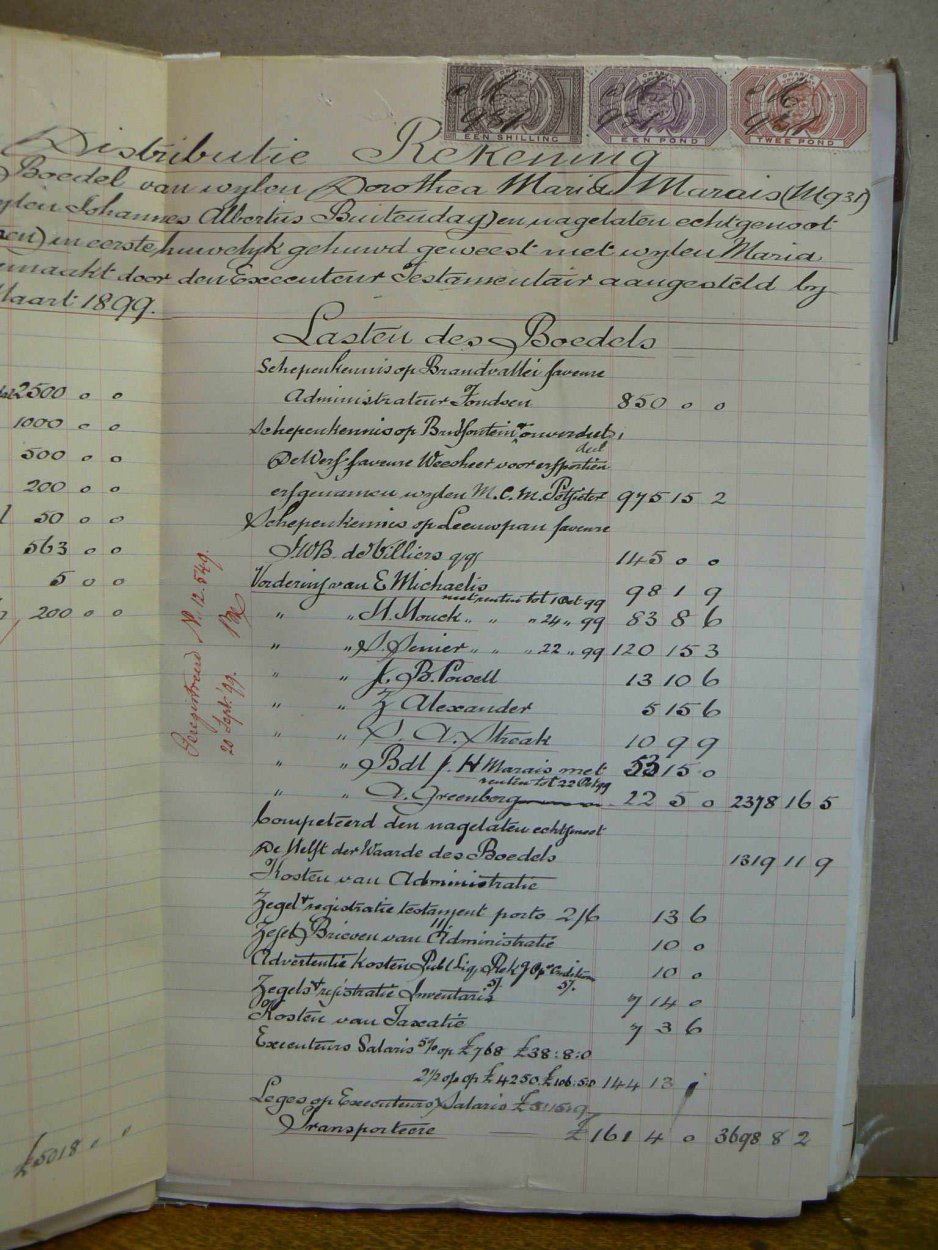 ORANJE
EEN SHILLING
ORANJE
EEN POND
ORANJE
TWEE POND
Distributie Rekening
Boedel van wylen Dorothea Maria Marais (M931)
Johannes Albertus Buitendag) en nagelaten echtgenoot
in eerste huwelyk gehuwd geweest met wylen Maria
gemaakt door den Executeur Testamentair aangesteld by
Maart 1899.
Lasten des Boedels
Schepenkennis op Brandvallei faveure
Administrateur Fondsen 850 0 0
2500 0 0
Schepenkennis op onverdeeld
deel
1000 0 0
De Werf faveure Weesheer voor erfportien
500 0 0
erfgenamen wylen M.C.M. Potgieter 975 15 2
200 0 0
Schepenkennis op Leeuwpan faveure
50 0 0
J.W.B. de Villiers qq 145 0 0
563 0 0
Vordering van E Michaelis 98 1 9
5 0 0
met renten tot 1 Oct 99
" " H. Houck " " " 24 " 99 83 8 6
200 0 0
" " S. Senier " " " 22 " 99 120 15 3
" " J. B. Powell 13 10 6
" " Z Alexander 5 15 6
" " S. A. Streak 10 9 9
" " Bdl J. H Marais met 53 15 0
renten tot 22 Oct 99
" " A. Greenborg 22 5 0 2378 16 5
Geregistreerd No. 12.549.
20 Sept. 99.
Competeerd den nagelaten echtgenoot
De Helft der Waarde des Boedels 1319 11 9
Kosten van Administratie
Zegel & registratie testament porto 2/6 13 6
Zegel Brieven van Administratie 10 0
Advertentie kosten Publ Liq. Rek 10 0
5/. 5/.
Zegels & registratie Inventaris 7 14 0
Kosten van Taxatie 7 3 6
Executeurs Salaris 5% op £768 £38:8:0
2½ % op £4250 £106:5:0 144 13
Leges op Executeurs Salaris
Transporteere £161 4 0 3698 8 2
£5018 " "